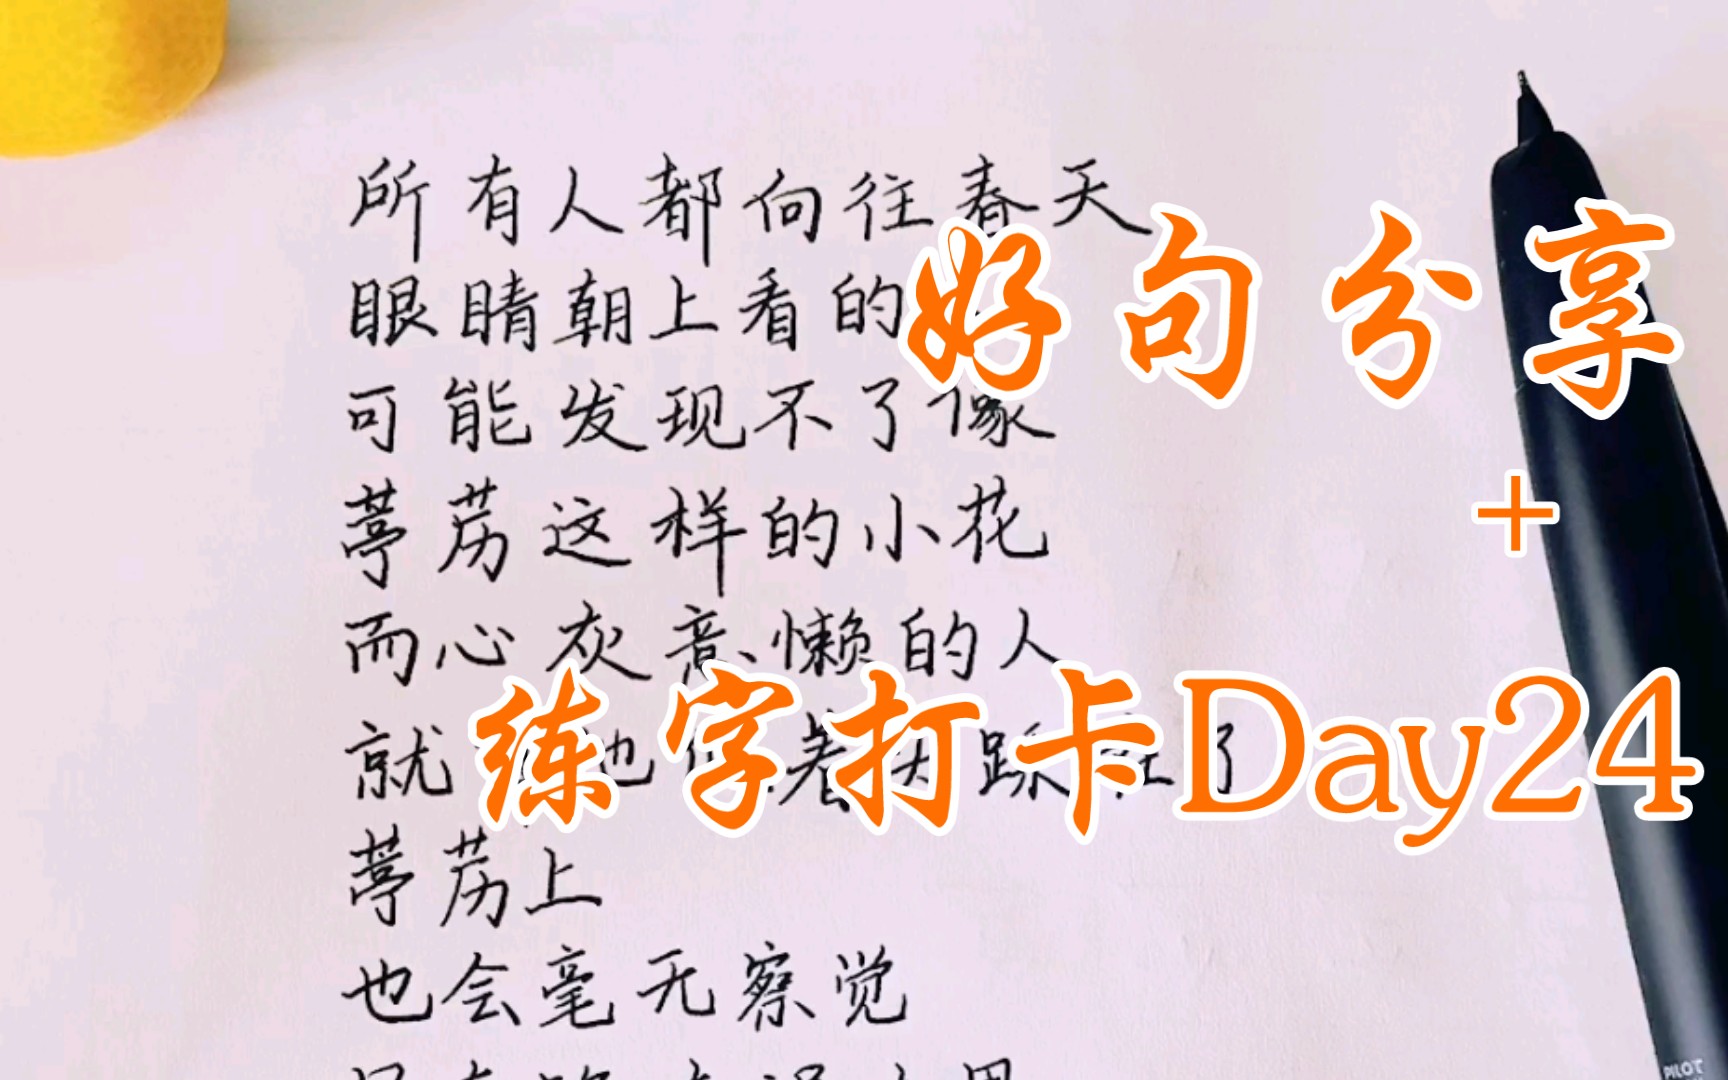 所有人都向往春天
眼睛朝上看的
可能发现不了像
葶苈这样的小花
而心灰意懒的人
就 他 着头踩在了
葶苈上
也会毫无察觉
只有
好句分享
+
练字打卡Day24
PILOT